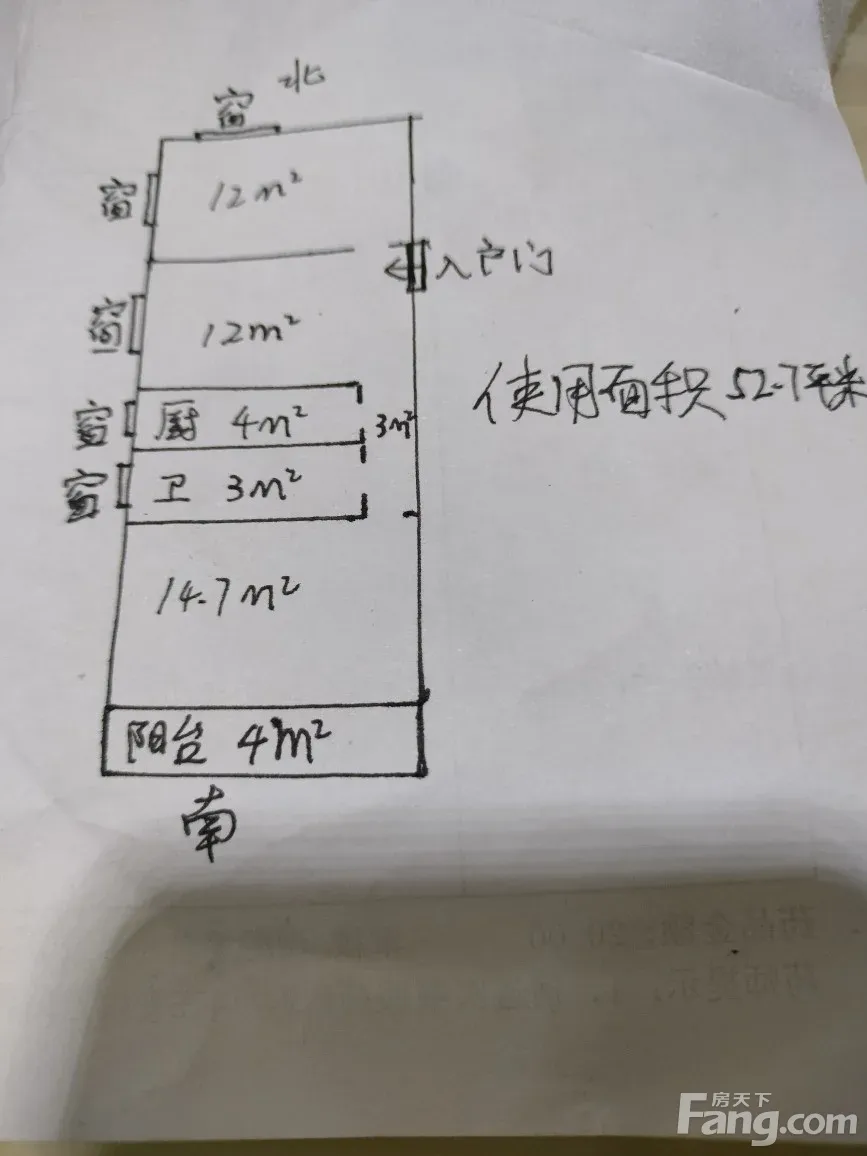 北
窗
窗
12m²
入户门
窗
12m²
使用面积52.7平米
窗
厨 4m²
3m²
窗
卫 3m²
14.7m²
阳台 4m²
南
药品金额:20.00
药师提示:1、
房天下
Fang.com